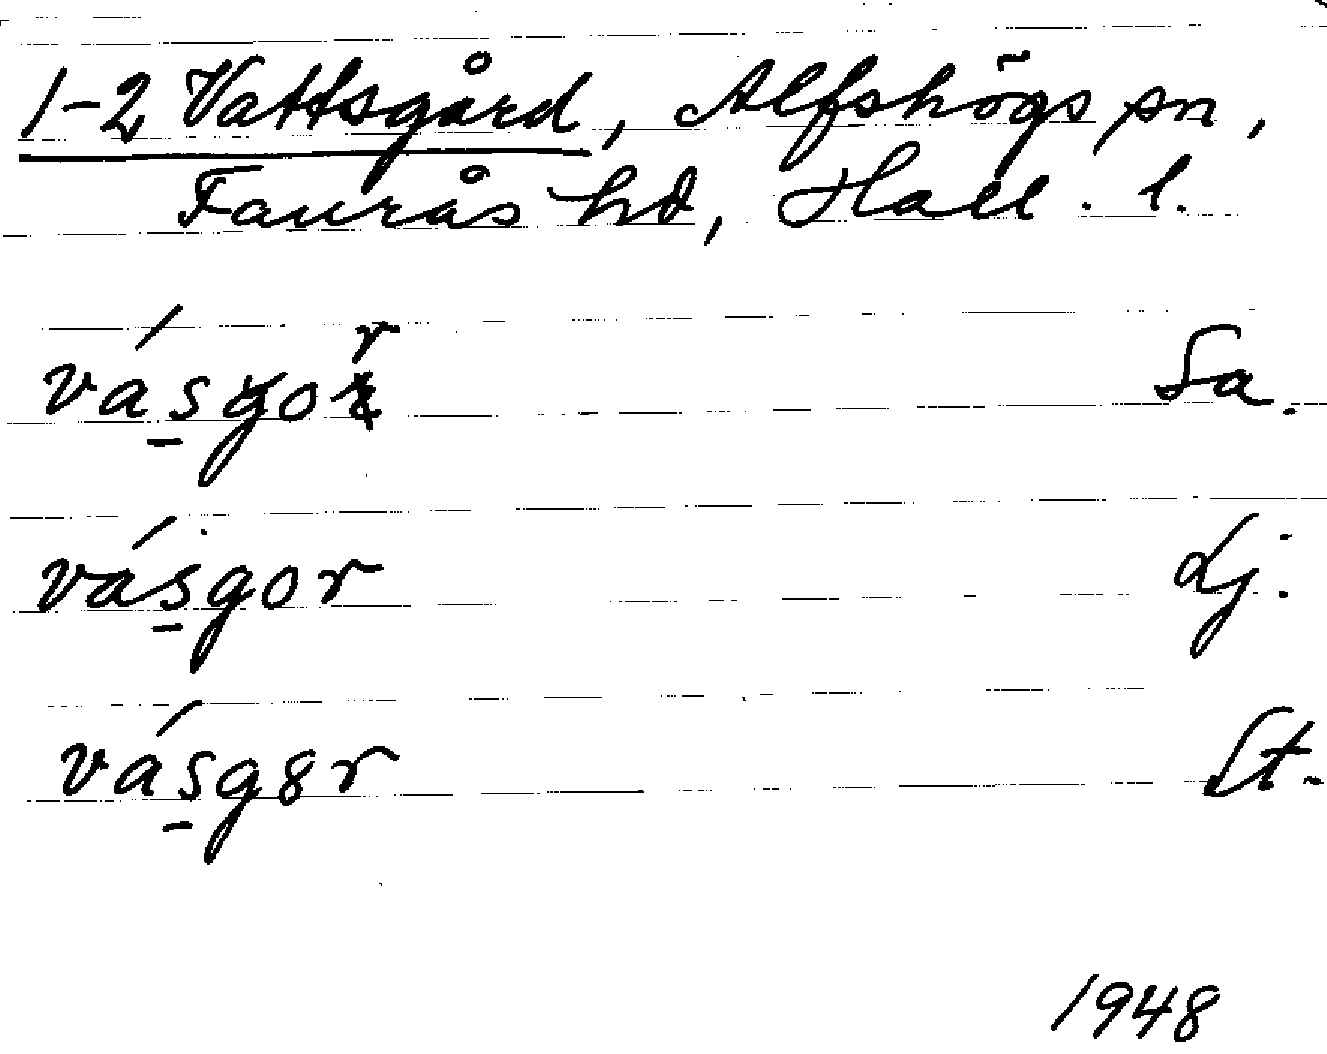 1-2 Vattsgård, Alfshögs sn,
Faurås hd, Hall. l.
vásgor Sa.
vásgor Lj.
vásg8r St.
1948